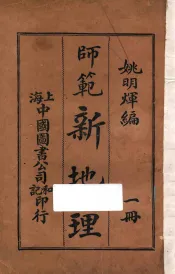 姚明煇編
一冊
師範新地理
上海中國圖書公司和記印行